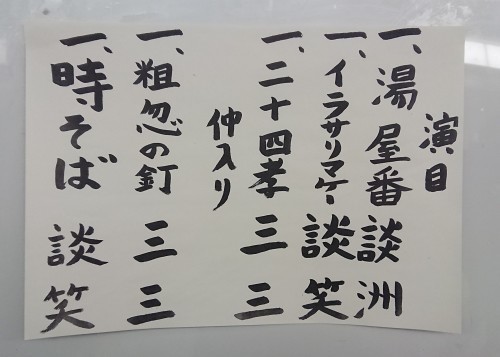 演目
一、湯屋番 談洲
一、イラサリマケー 談笑
一、二十四孝 三三
仲入り
一、粗忽の釘 三三
一、時そば 談笑